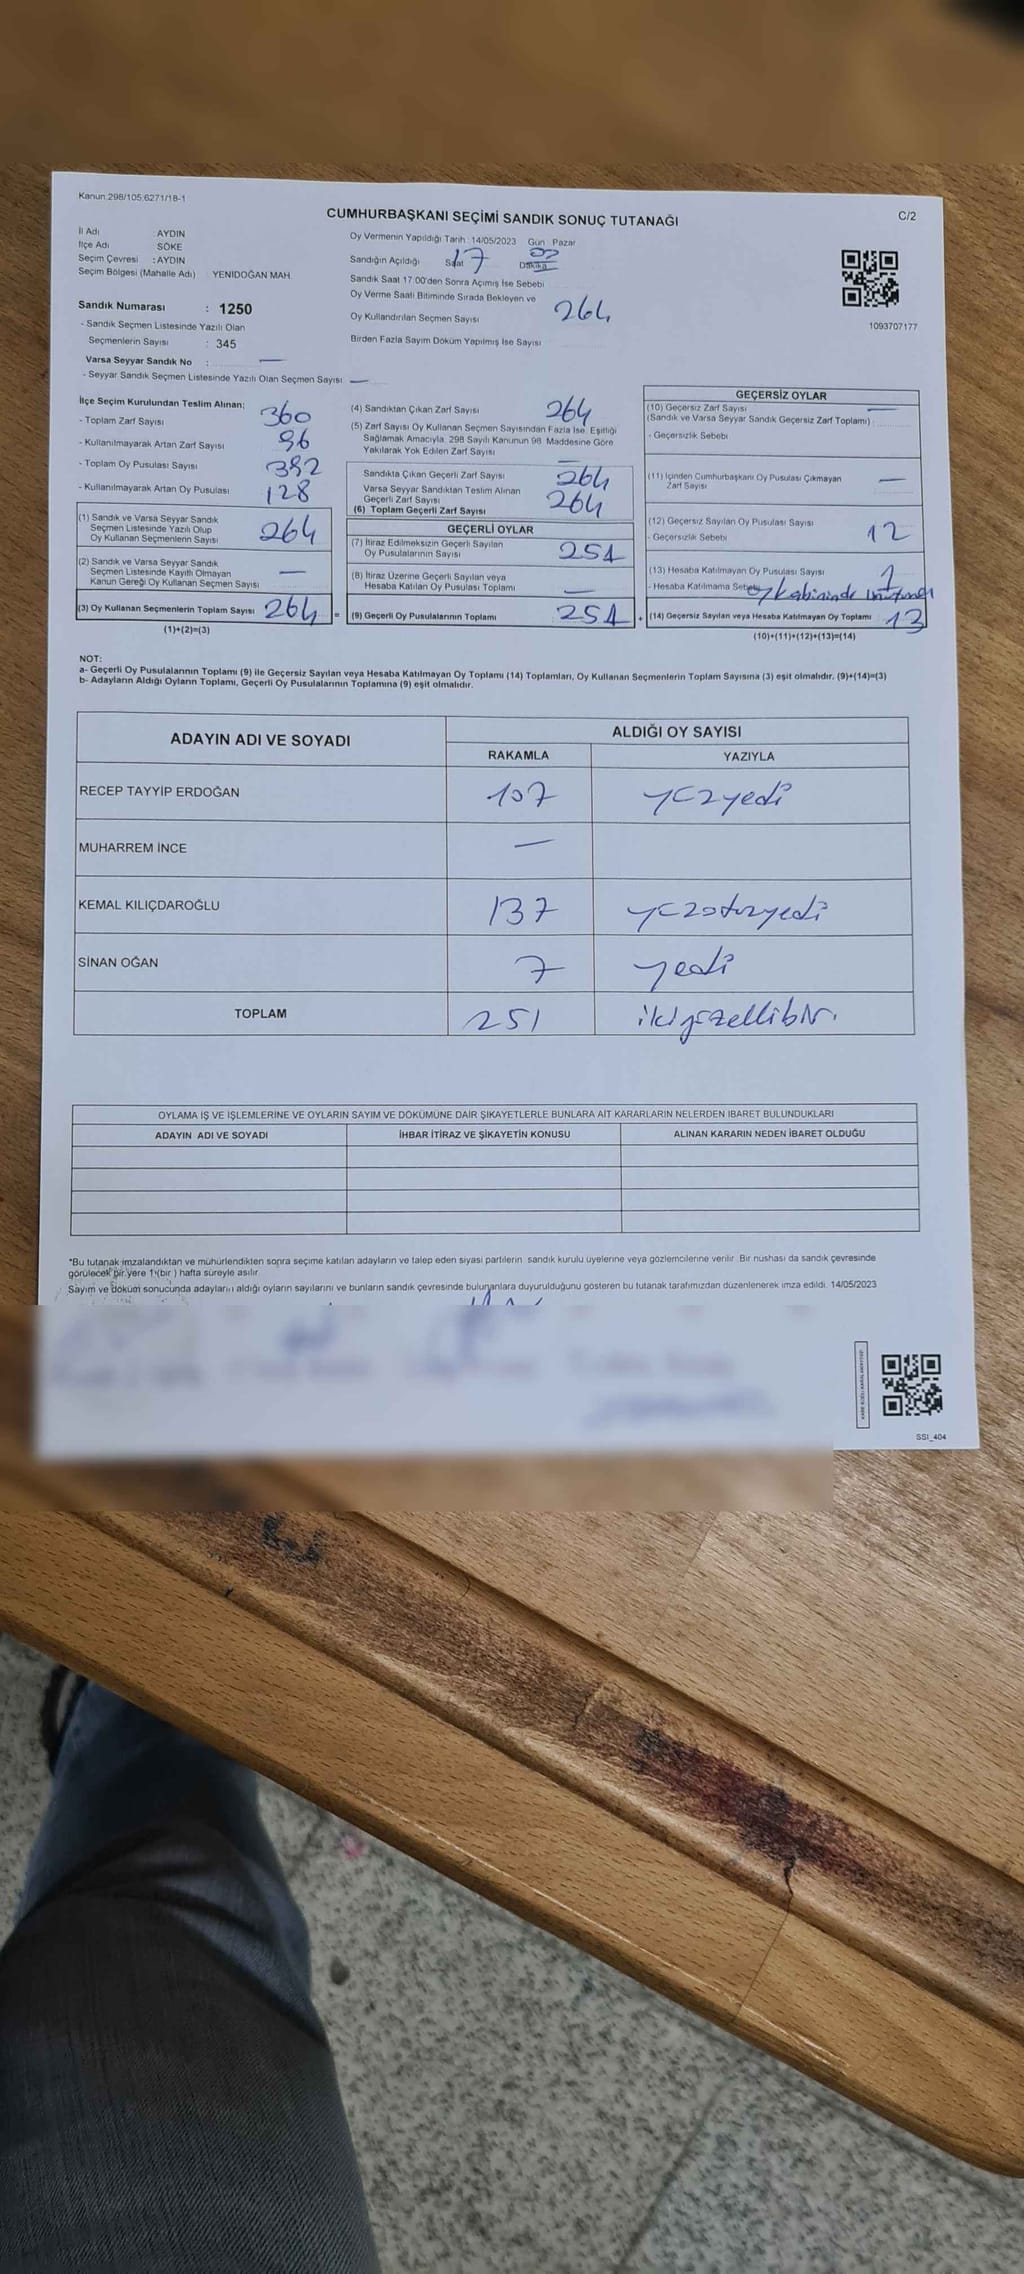 Kanun:298/105,6271/18-1
C/2
CUMHURBAŞKANI SEÇİMİ SANDIK SONUÇ TUTANAĞI
İl Adı AYDIN
İlçe Adı SÖKE
Seçim Çevresi : AYDIN
Seçim Bölgesi (Mahalle Adı) YENİDOĞAN MAH.
Sandık Numarası : 1250
- Sandık Seçmen Listesinde Yazılı Olan
Seçmenlerin Sayısı : 345
Varsa Seyyar Sandık No : —
- Seyyar Sandık Seçmen Listesinde Yazılı Olan Seçmen Sayısı : —
Oy Vermenin Yapıldığı Tarih : 14/05/2023 Gün : Pazar
Sandığın Açıldığı Saat 17 Dakika 00
Sandık Saat 17:00'den Sonra Açılmış İse Sebebi
Oy Verme Saati Bitiminde Sırada Bekleyen ve
Oy Kullandırılan Seçmen Sayısı 264
Birden Fazla Sayım Döküm Yapılmış İse Sayısı
1093707177
İlçe Seçim Kurulundan Teslim Alınan;
- Toplam Zarf Sayısı 360
- Kullanılmayarak Artan Zarf Sayısı 96
- Toplam Oy Pusulası Sayısı 392
- Kullanılmayarak Artan Oy Pusulası 128
(1) Sandık ve Varsa Seyyar Sandık
Seçmen Listesinde Yazılı Olup
Oy Kullanan Seçmenlerin Sayısı 264
(2) Sandık ve Varsa Seyyar Sandık
Seçmen Listesinde Kayıtlı Olmayan
Kanun Gereği Oy Kullanan Seçmen Sayısı —
(3) Oy Kullanan Seçmenlerin Toplam Sayısı 264 =
(1)+(2)=(3)
(4) Sandıktan Çıkan Zarf Sayısı 264
(5) Zarf Sayısı Oy Kullanan Seçmen Sayısından Fazla İse, Eşitliği
Sağlamak Amacıyla, 298 Sayılı Kanunun 98. Maddesine Göre
Yakılarak Yok Edilen Zarf Sayısı —
Sandıkta Çıkan Geçerli Zarf Sayısı 264
Varsa Seyyar Sandıktan Teslim Alınan
Geçerli Zarf Sayısı
(6) Toplam Geçerli Zarf Sayısı 264
GEÇERLİ OYLAR
(7) İtiraz Edilmeksizin Geçerli Sayılan
Oy Pusulalarının Sayısı 251
(8) İtiraz Üzerine Geçerli Sayılan veya
Hesaba Katılan Oy Pusulası Toplamı —
(9) Geçerli Oy Pusulalarının Toplamı 251 +
GEÇERSİZ OYLAR
(10) Geçersiz Zarf Sayısı —
(Sandık ve Varsa Seyyar Sandık Geçersiz Zarf Toplamı)
- Geçersizlik Sebebi
(11) İçinden Cumhurbaşkanı Oy Pusulası Çıkmayan
Zarf Sayısı —
(12) Geçersiz Sayılan Oy Pusulası Sayısı 12
- Geçersizlik Sebebi
(13) Hesaba Katılmayan Oy Pusulası Sayısı 1
- Hesaba Katılmama Sebebi oy kabininde
(14) Geçersiz Sayılan veya Hesaba Katılmayan Oy Toplamı 13
(10)+(11)+(12)+(13)=(14)
NOT:
a- Geçerli Oy Pusulalarının Toplamı (9) ile Geçersiz Sayılan veya Hesaba Katılmayan Oy Toplamı (14) Toplamları, Oy Kullanan Seçmenlerin Toplam Sayısına (3) eşit olmalıdır. (9)+(14)=(3)
b- Adayların Aldığı Oyların Toplamı, Geçerli Oy Pusulalarının Toplamına (9) eşit olmalıdır.
ADAYIN ADI VE SOYADI ALDIĞI OY SAYISI
RAKAMLA YAZIYLA
RECEP TAYYİP ERDOĞAN 107 yüzyedi
MUHARREM İNCE —
KEMAL KILIÇDAROĞLU 137 yüzotuzyedi
SİNAN OĞAN 7 yedi
TOPLAM 251 ikiyüzellibir.
OYLAMA İŞ VE İŞLEMLERİNE VE OYLARIN SAYIM VE DÖKÜMÜNE DAİR ŞİKAYETLERLE BUNLARA AİT KARARLARIN NELERDEN İBARET BULUNDUKLARI
ADAYIN ADI VE SOYADI İHBAR İTİRAZ VE ŞİKAYETİN KONUSU ALINAN KARARIN NEDEN İBARET OLDUĞU
*Bu tutanak imzalandıktan ve mühürlendikten sonra seçime katılan adayların ve talep eden siyasi partilerin sandık kurulu üyelerine veya gözlemcilerine verilir. Bir nüshası da sandık çevresinde
görülecek bir yere 1 (bir) hafta süreyle asılır.
Sayım ve döküm sonucunda adayların aldığı oyların sayılarını ve bunların sandık çevresinde bulunanlara duyurulduğunu gösteren bu tutanak tarafımızdan düzenlenerek imza edildi. 14/05/2023
SSI_404